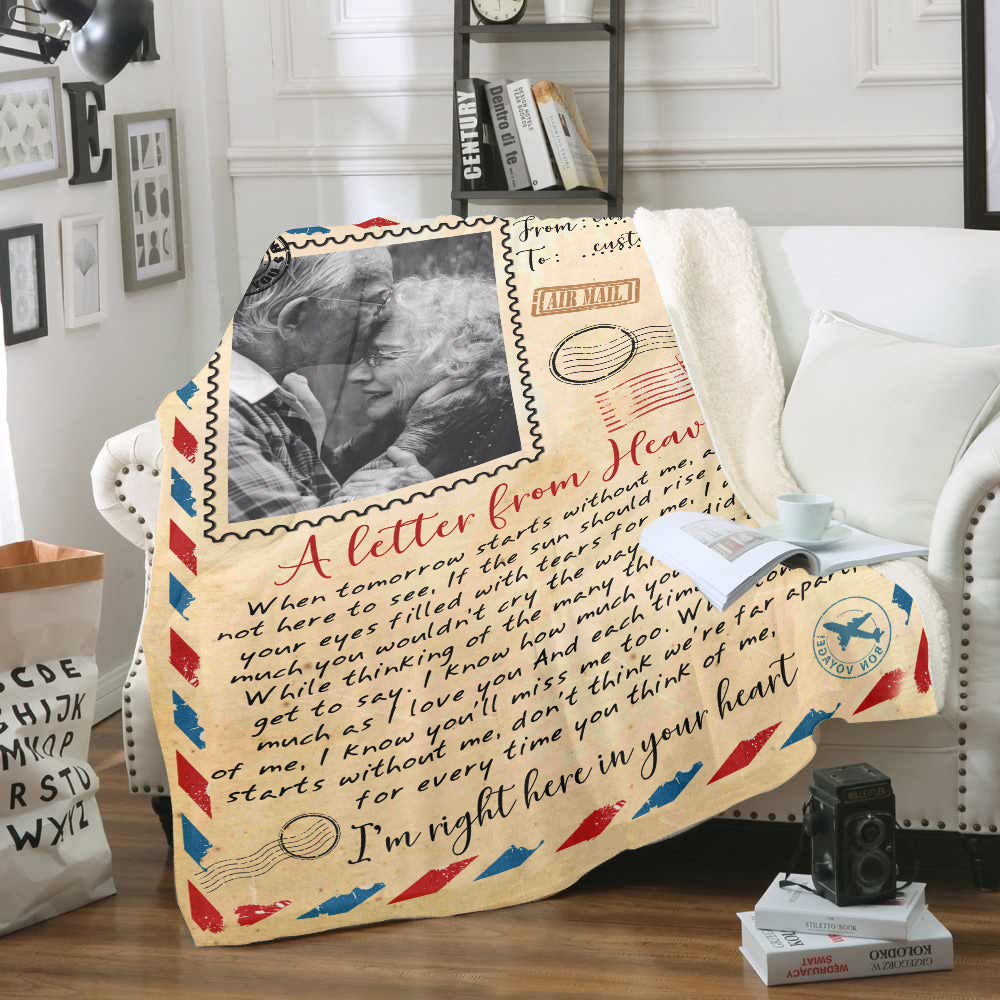 From:
To:
AIR MAIL
A letter from Heav
When tomorrow starts without me, a
not here to see, If the sun should rise
your eyes filled with tears for me, I
much you wouldn't cry the way did
While thinking of the many thi
get to say. I know how much you
much as I love you And each time
of me, I know you'll miss me too. W
starts without me, don't think we're far apart,
for every time you think of me,
I'm right here in your heart
BON VOYAGE!
CENTURY
Dentro di te
DESIGN HOTELS
YEAR BOOK 04
E
CDE
GHIJK
MNOP
RSTU
WXYZ
ROLLEIFLEX
STILETTO BOOK
WĘDRUJĄCY
ŚWIAT
GRZEGORZ W.
KOŁODKO